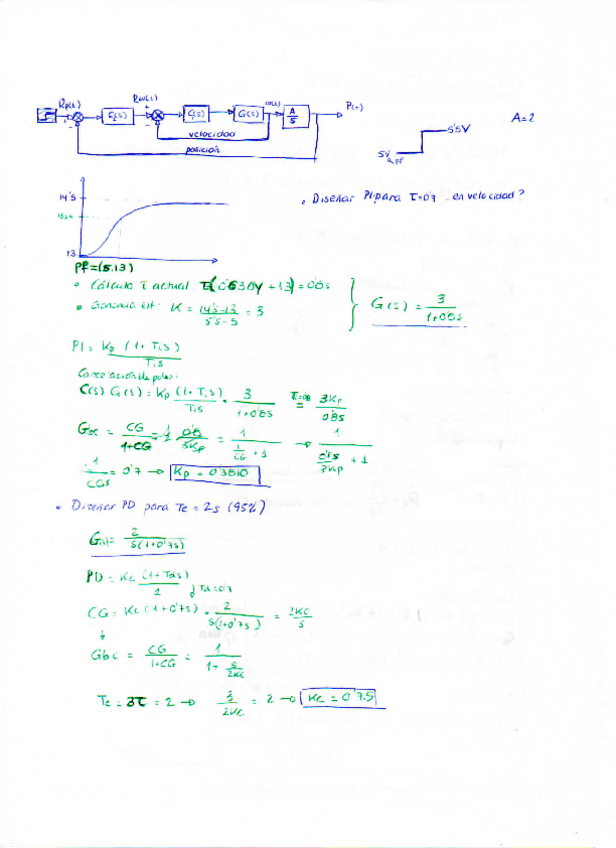 Rp(t) Rω(t) ω(t) P(t)
C₂(s) C₁(s) G(s) A/s
velocidad
posición
A=2
5'5V
5V
PF
14'5
13
• Diseñar PI para τ=0'7 en velocidad?
PF=(5,13)
• Cálculo τ actual = 0'8s
• Ganancia est. K = (14'5-13)/(5'5-5) = 3
G(s) = 3/(1+0'8s)
PI = Kp (1+Tis)/Tis
Cancelación de polos:
C(s) G(s) = Kp (1+Tis)/Tis · 3/(1+0'8s) = 3Kp/0'8s
Gbc = CG/(1+CG) = 1/(1/CG + 1) → 1/(0'8s/3Kp + 1)
1/CGs = 0'7 → Kp = 0'3810
• Diseñar PD para Te = 2s (95%)
G(s)= 2/(s(1+0'7s))
PD = Kc (1+Tds)/1 , Td=0'7
CG = Kc (1+0'7s) · 2/(s(1+0'7s)) = 2Kc/s
Gbc = CG/(1+CG) = 1/(1+ s/2Kc)
Te = 3τ = 2 → 3/2Kc = 2 → Kc = 0'75